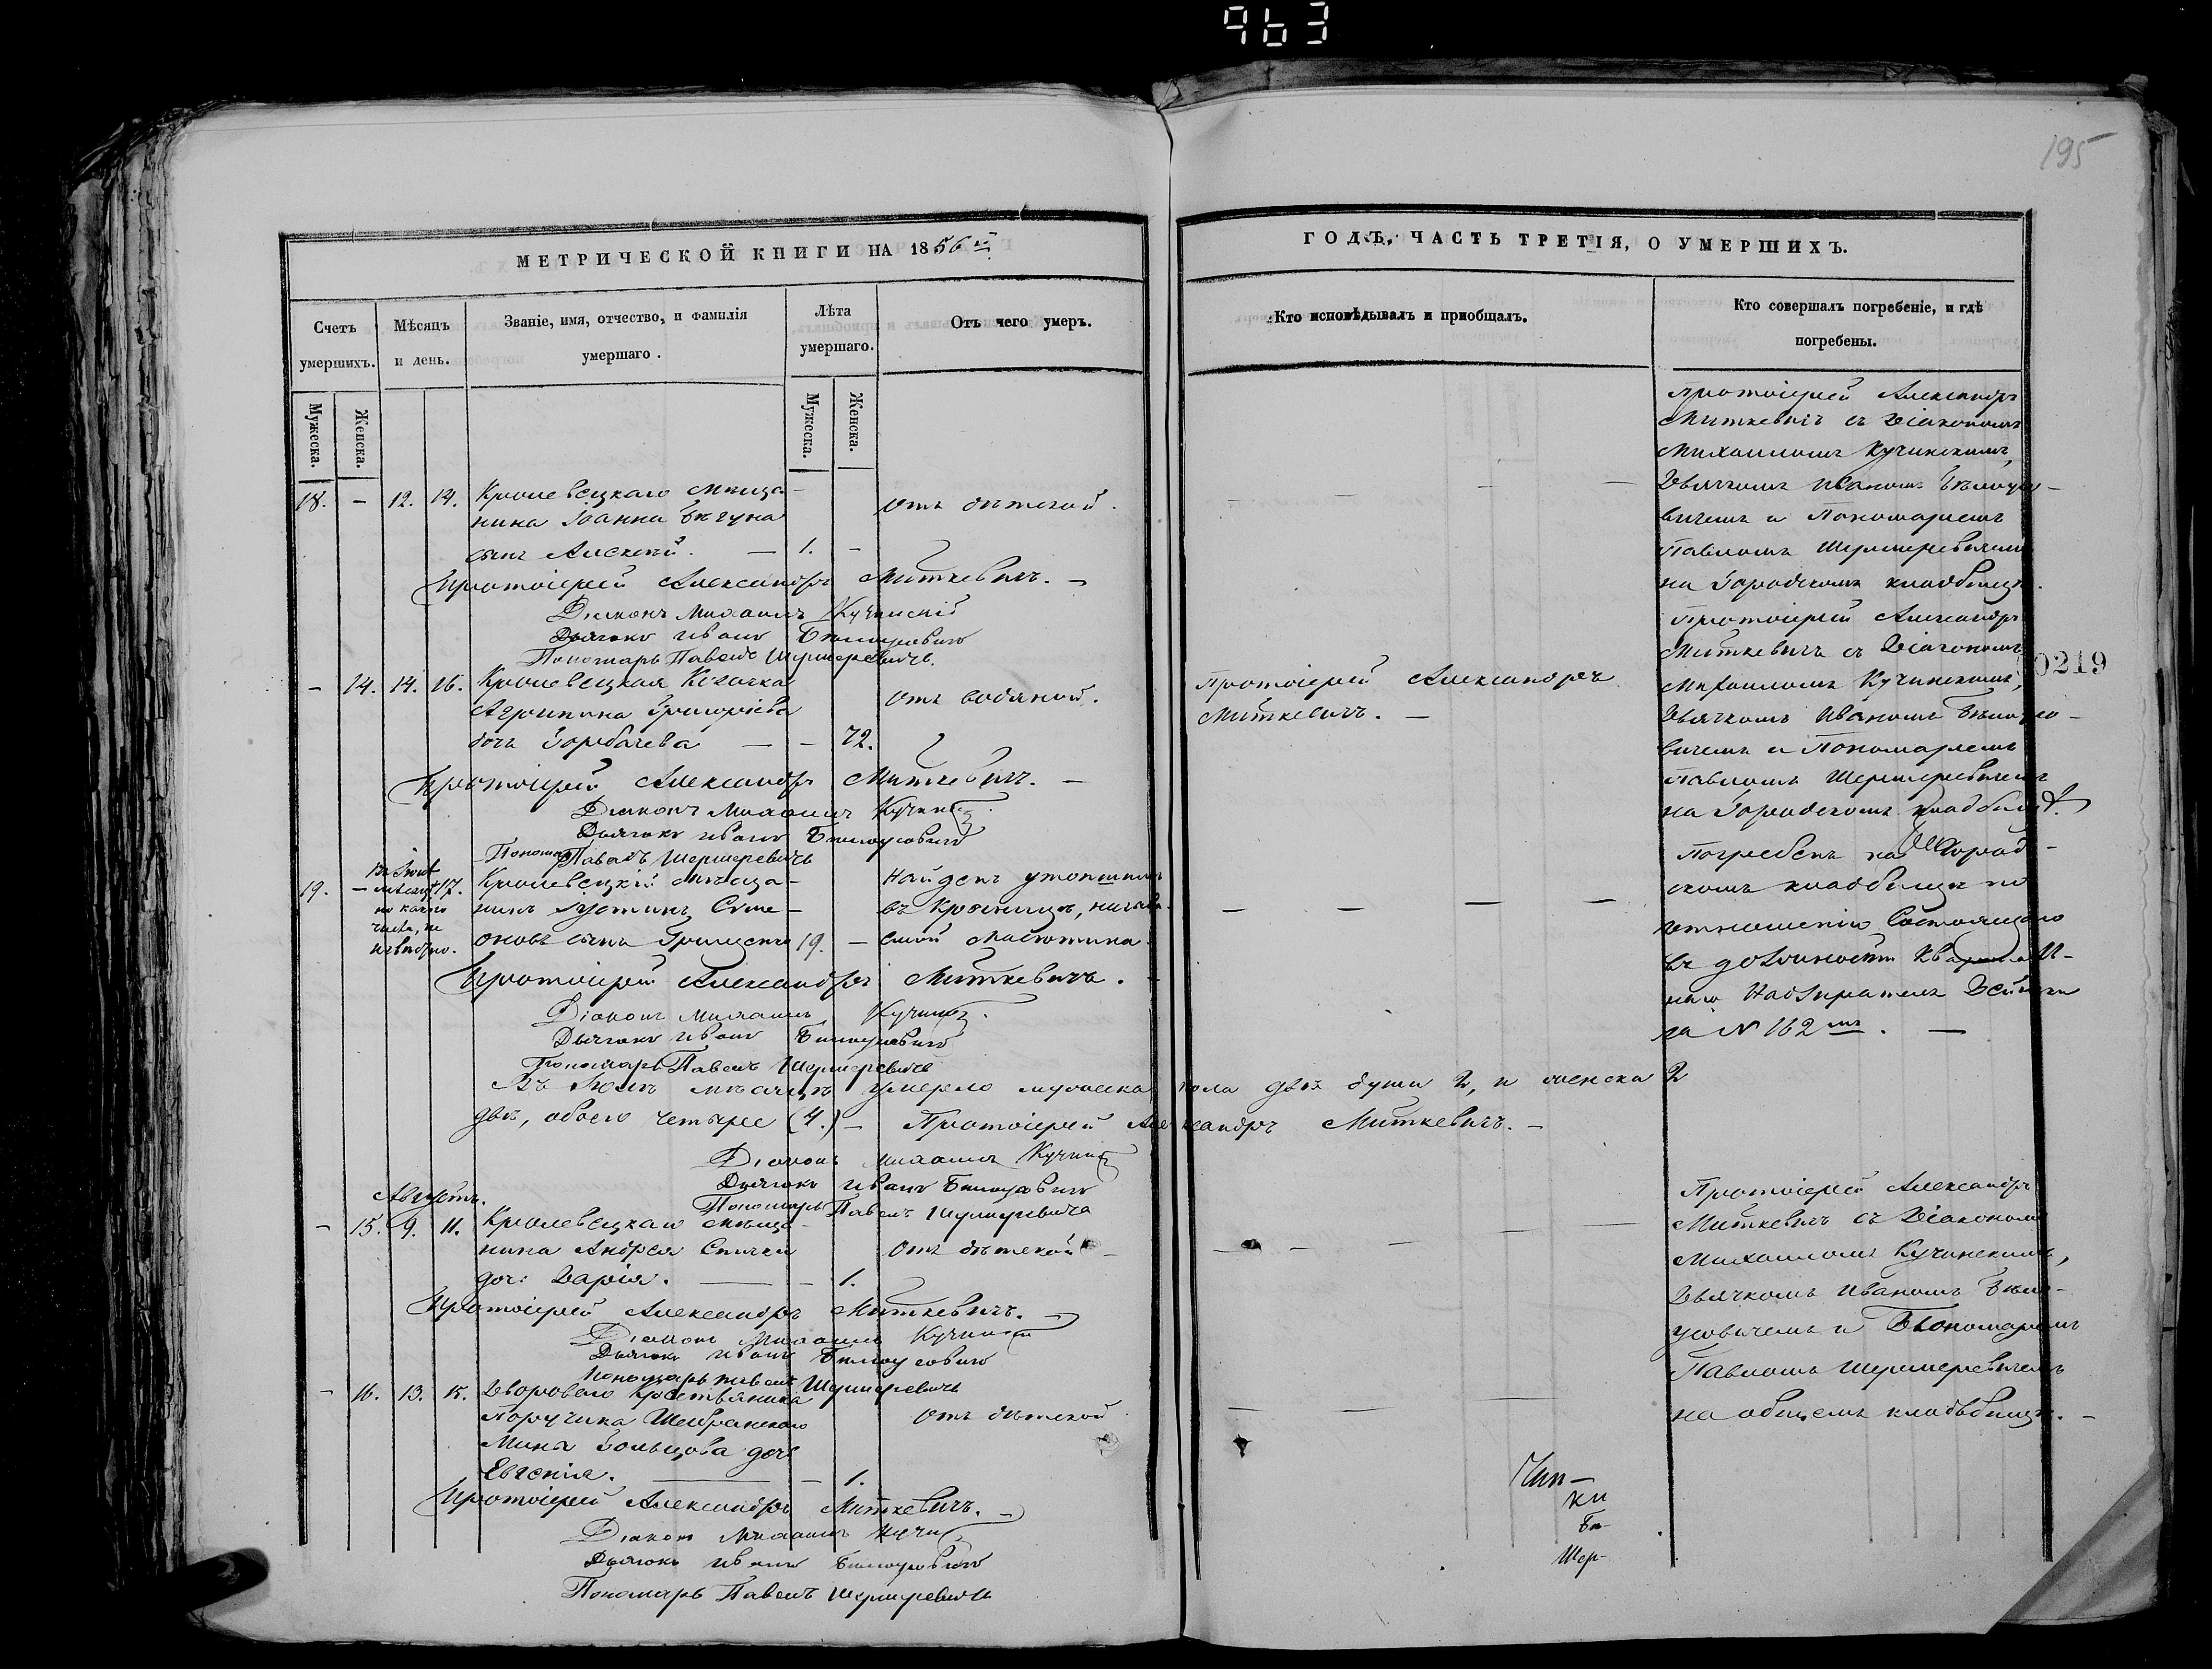 963
195
МЕТРИЧЕСКОЙ КНИГИ НА 1856й
ГОДЪ, ЧАСТЬ ТРЕТІЯ, О УМЕРШИХЪ.
Счетъ умершихъ.
Мѣсяцъ и день.
Званіе, имя, отчество, и фамилія умершаго.
Лѣта умершаго.
Отъ чего умеръ.
Кто исповѣдывалъ и приобщалъ.
Кто совершалъ погребеніе, и гдѣ погребены.
Мужеска.
Женска.
Мужеска.
Женска.
18. — 12. 14. Кролевецкаго мѣща-
нина Іоанна Бѣгуна
сынъ Алексѣй. — 1. —
отъ дѣтской.
Протоіерей Александръ
Миткевичъ съ Діакономъ
Михаиломъ Кучинскимъ,
Дьячкомъ Иваномъ Бѣлоусо-
вичемъ и Пономаремъ
Павломъ Шермеревичемъ
на Городскомъ кладбищѣ.
Протоіерей Александръ Миткевичъ. —
Діаконъ Михаилъ Кучинскій
Дьячокъ Иванъ Бѣлоусовичъ
Пономарь Павелъ Шермеревичъ.
— 14. 14. 16. Кролевецкая Козачка
Агрипина Григоріева
дочь Горбачева — — 72.
отъ водяной.
Протоіерей Александръ
Миткевичъ. —
Протоіерей Александръ
Миткевичъ съ Діакономъ
Михаиломъ Кучинскимъ,
Дьячкомъ Иваномъ Бѣлоусо-
вичемъ и Пономаремъ
Павломъ Шермеревичемъ
на Городскомъ кладбищѣ.
00219
Протоіерей Александръ Миткевичъ. —
Діаконъ Михаилъ Кучинс
Дьячокъ Иванъ Бѣлоусовичъ
Пономарь Павелъ Шермеревичъ
19. — Въ Іюлѣ мѣсяцѣ но какого числа, не извѣстно. 17. Кролевецкій мѣща-
нинъ Іустинъ Симе-
оновъ сынъ Грищенко 19. —
Найденъ утопшимъ
въ Кроницѣ, называ-
емой Масютина.
Погребенъ на Город-
скомъ кладбищѣ по
отношенію Состоящаго
въ должности Квартал-
наго Надзирателя
за N 162мъ. —
Протоіерей Александръ Миткевичъ.
Діаконъ Михаилъ Кучинс
Дьячокъ Иванъ Бѣлоусовичъ
Пономарь Павелъ Шермеревичъ
Въ Іюлѣ мѣсяцѣ умерло мужеска пола двѣ души 2, и женска 2
двѣ, обоего четыре (4.) — Протоіерей Александръ Миткевичъ. —
Діаконъ Михаилъ Кучинс
Дьячокъ Иванъ Бѣлоусовичъ
Пономарь Павелъ Шермеревичъ
Августъ.
— 15. 9. 11. Кролевецкаго мѣща-
нина Андрея Спички
доч: Дарія. — — 1.
отъ дѣтской
Протоіерей Александръ
Миткевичъ съ Діакономъ
Михаиломъ Кучинскимъ,
Дьячкомъ Иваномъ Бѣло-
усовичемъ и Пономаремъ
Павломъ Шермеревичемъ
на общемъ кладбищѣ. —
Протоіерей Александръ Миткевичъ. —
Діаконъ Михаилъ Кучинс
Дьячокъ Иванъ Бѣлоусовичъ
Пономарь Павелъ Шермеревичъ
— 16. 13. 15. Двороваго крестьянина
Поручика
Мины Гольцова дочь
Евгенія. — — 1.
отъ дѣтской
Протоіерей Александръ Миткевичъ. —
Діаконъ Михаилъ Кучи
Дьячокъ Иванъ Бѣлоусовичъ
Пономарь Павелъ Шермеревичъ
ки
Бѣ-
Шер-